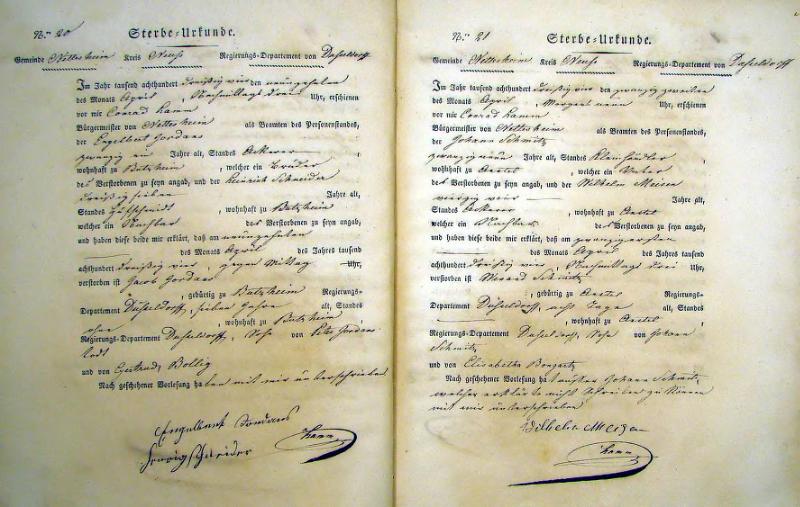 Nro 20
Sterbe-Urkunde.
Gemeinde Nettesheim Kreis Neuss Regierungs-Departement von Düsseldorff
Im Jahr tausend achthundert dreißig vier den neunzehnten
des Monats April, Nachmittags drei Uhr, erschienen
vor mir Conrad Hamm
Bürgermeister von Nettesheim als Beamten des Personenstandes,
der Engelbert Gordans
zwanzig ein Jahre alt, Standes Ackerer
wohnhaft zu Butzheim, welcher ein Bruder
des Verstorbenen zu seyn angab, und der Heinrich Schneider
dreißig sieben Jahre alt,
Standes, wohnhaft zu Butzheim
welcher ein Nachbar des Verstorbenen zu seyn angab,
und haben diese beide mir erklärt, daß am neunzehnten
des Monats April des Jahres tausend
achthundert dreißig vier, gegen Mittag Uhr,
verstorben ist Jacob Gordans
, gebürtig zu Butzheim Regierungs-
Departement Düsseldorff, sieben Jahre alt, Standes
ohne, wohnhaft zu Butzheim
Regierungs-Departement Düsseldorff, Sohn von Peter Gordans
und von Gertrud Bollig
Nach geschehener Vorlesung haben mit mir unterschrieben
Engelbert Gordans
Schneider
Hamm
Nro 21
Sterbe-Urkunde.
Gemeinde Nettesheim Kreis Neuss Regierungs-Departement von Düsseldorff
Im Jahr tausend achthundert dreißig vier den zwanzig zweiten
des Monats April, Morgens neun Uhr, erschienen
vor mir Conrad Hamm
Bürgermeister von Nettesheim als Beamten des Personenstandes,
der Johann Schmitz
zwanzig neun Jahre alt, Standes Kleinhändler
wohnhaft zu, welcher ein Vater
des Verstorbenen zu seyn angab, und der Wilhelm Meisen
vierzig vier Jahre alt,
Standes Ackerer, wohnhaft zu
welcher ein Nachbar des Verstorbenen zu seyn angab,
und haben diese beide mir erklärt, daß am zwanzigsten
des Monats April des Jahres tausend
achthundert dreißig vier, Nachmittags drei Uhr,
verstorben ist Schmitz
, gebürtig zu Regierungs-
Departement Düsseldorff, acht Tage alt, Standes
, wohnhaft zu
Regierungs-Departement Düsseldorff, Sohn von Johann
Schmitz
und von Elisabetha Bongartz
Nach geschehener Vorlesung hat Johann Schmitz
welcher erklärte nicht schreiben zu können
mit mir unterschrieben
Wilhelm Meisen
Hamm